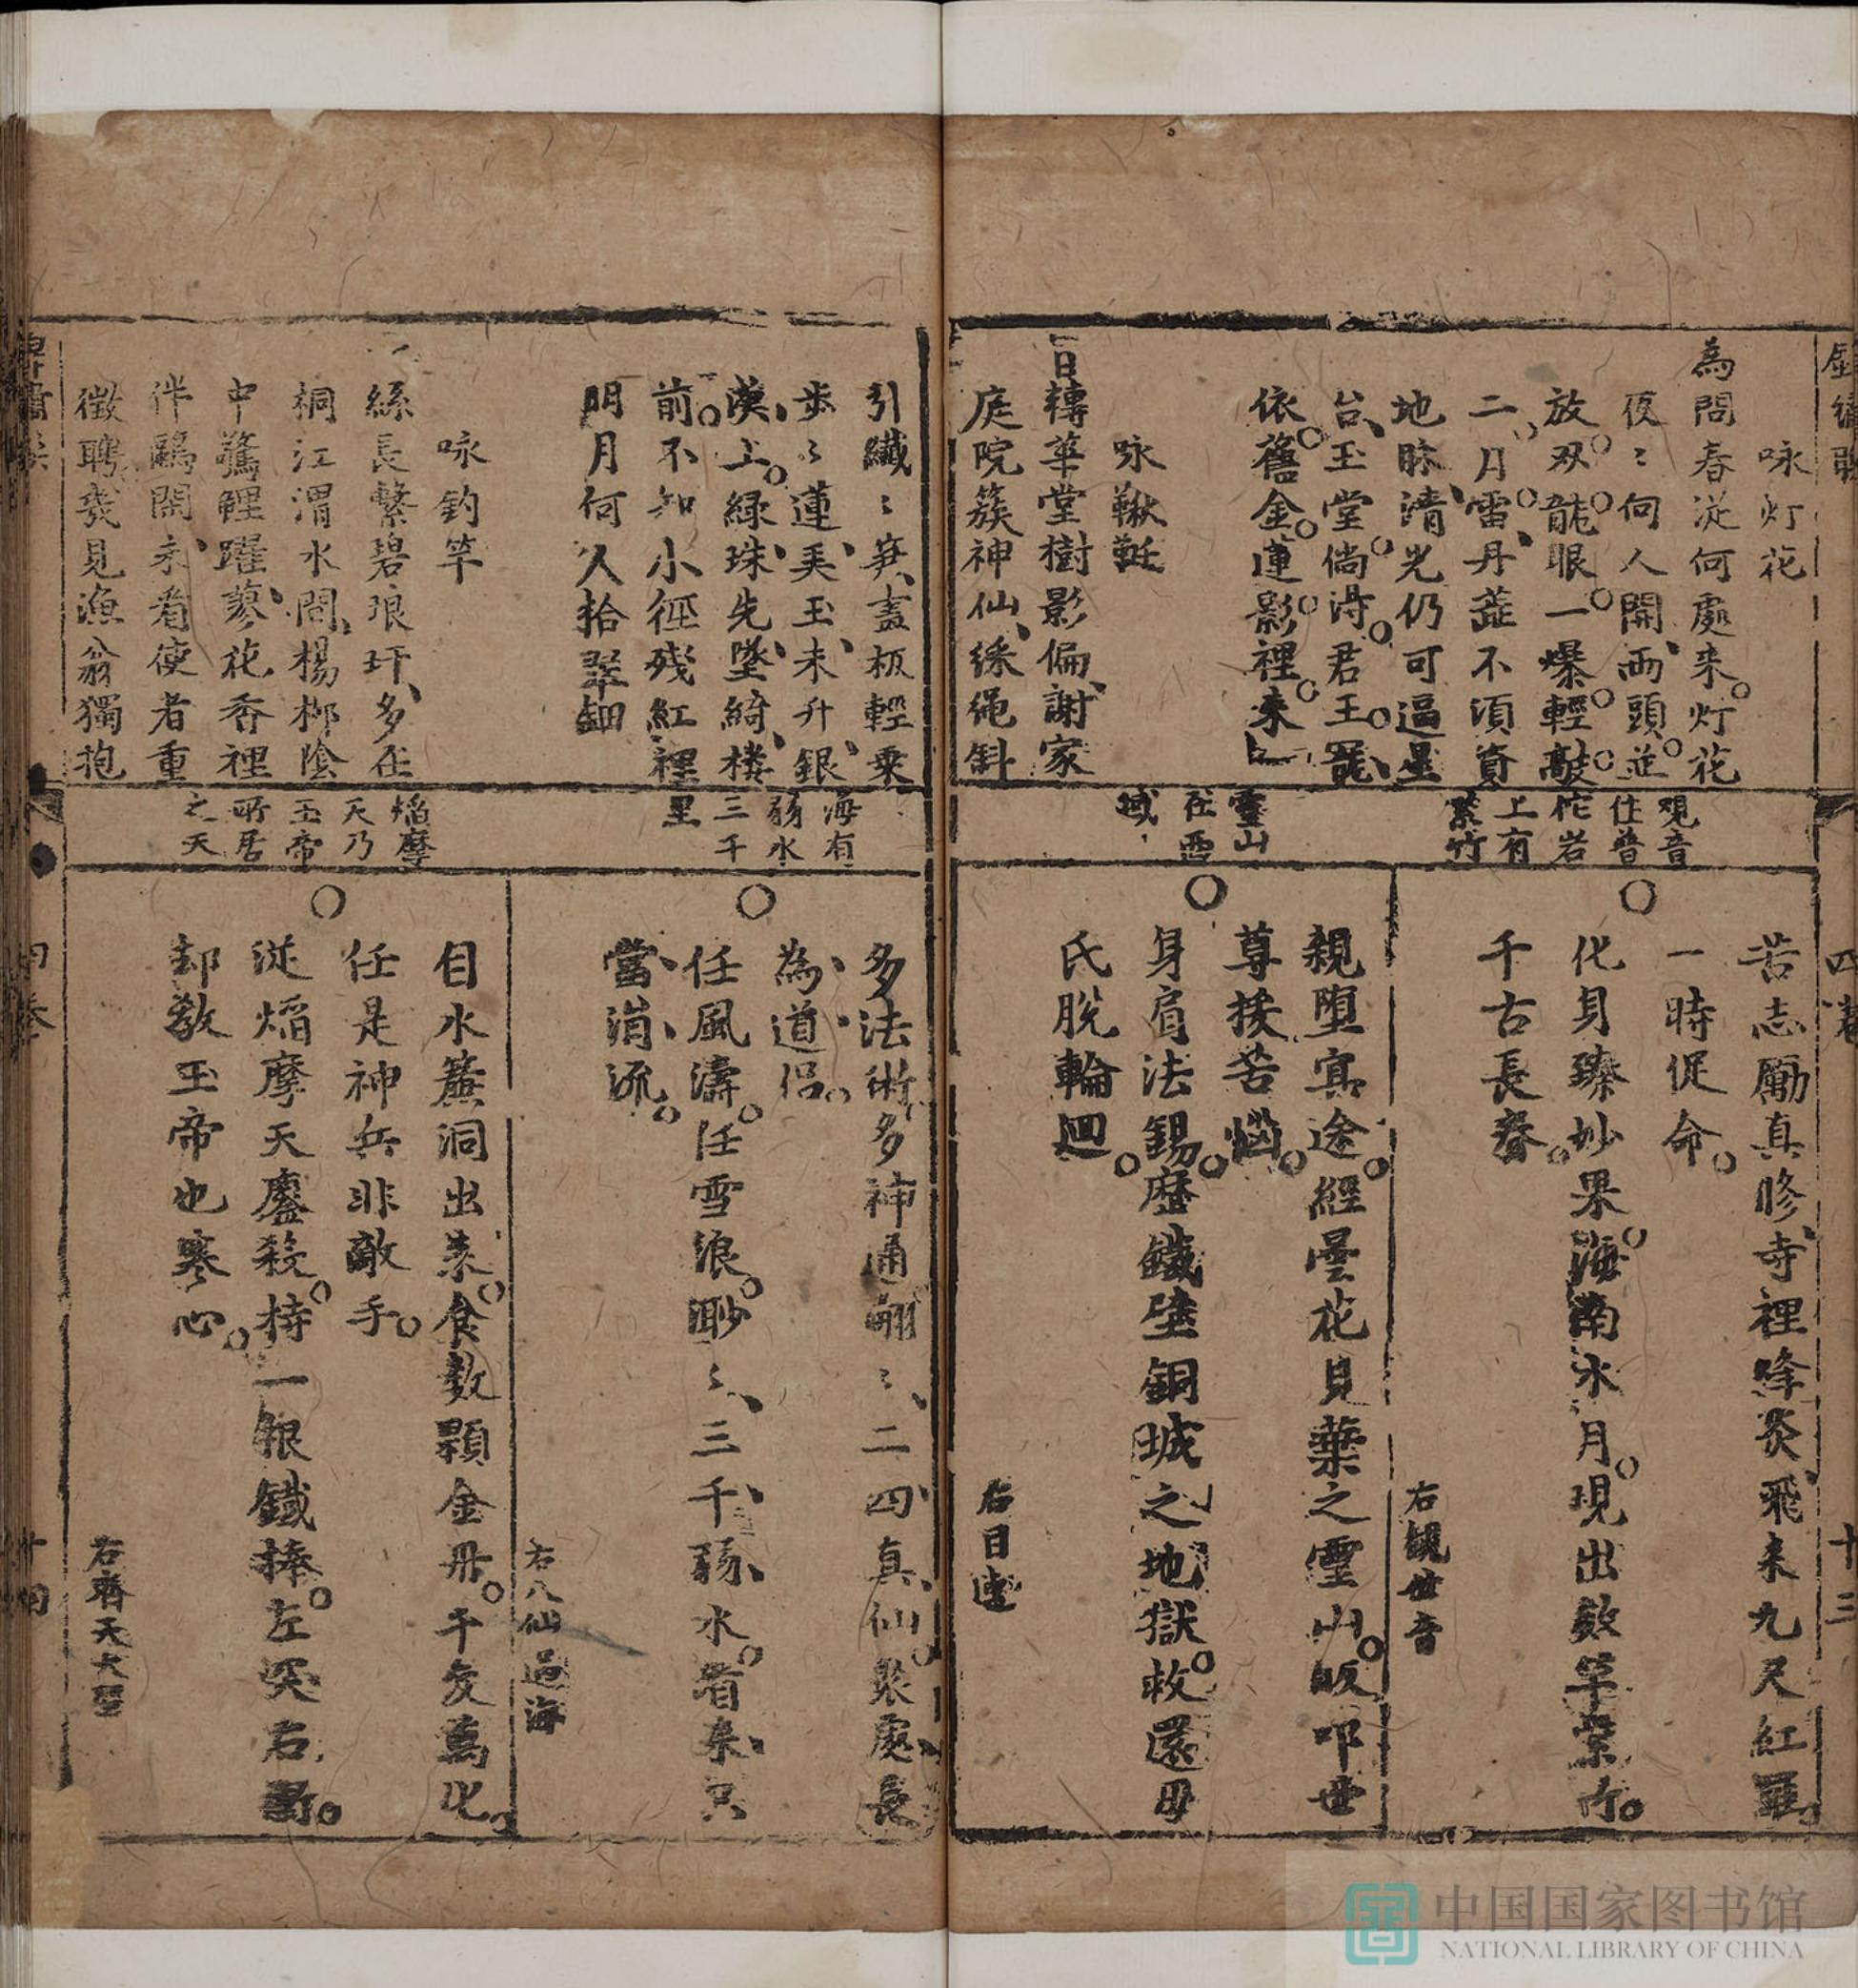 咏灯花
為問春従何處来灯花
夜〻向人開両頭並
放双龍眼一爆輕敲
二月雷丹蕋不湏資
地脉清光仍可逼星
台玉堂倘淂君王寵
依舊金蓮影裡来
咏鞦韆
日轉華堂樹影偏謝家
庭院簇神仙綵绳斜
觀音
住普
佗岩
上有
紫竹
靈山
在西
域
苦志勵真修寺裡烽炎飛来九尺紅羅
一時促命
化身臻妙果海南水月現出数竿紫竹
千古長春
右觀世音
親堕冥途經曇花見葉之靈山皈叩世
尊救苦惱
身肩法錫歷鐵壁銅城之地獄救還母
氏脫輪廻
右目連
四卷
十三
引纖〻笋畫板輕乗
歩〻蓮羙玉未升銀
漢上緑珠先墜綺楼
前不知小徑残紅裡
明月何人拾翠鈿
咏釣竿
絲長繫碧琅玕多在
桐江渭水間楊栁陰
中驚鯉躍蓼花香裡
伴鷗閑永着使者重
徵聘幾見漁翁獨抱
海有
弱水
三千
里
焰摩
天乃
玉帝
所居
之天
多法術多神通翩〻二四真仙聚處長
為道侣
任風濤任雪浪渺〻三千弱水看来只
當涓流
右八仙過海
自水簾洞出来食数顆金丹千变萬化
任是神兵非敵手
従焰摩天鏖殺持一根鐵捧左突右
却教玉帝也寒心
右齊天大聖
中国国家图书馆
NATIONAL LIBRARY OF CHINA